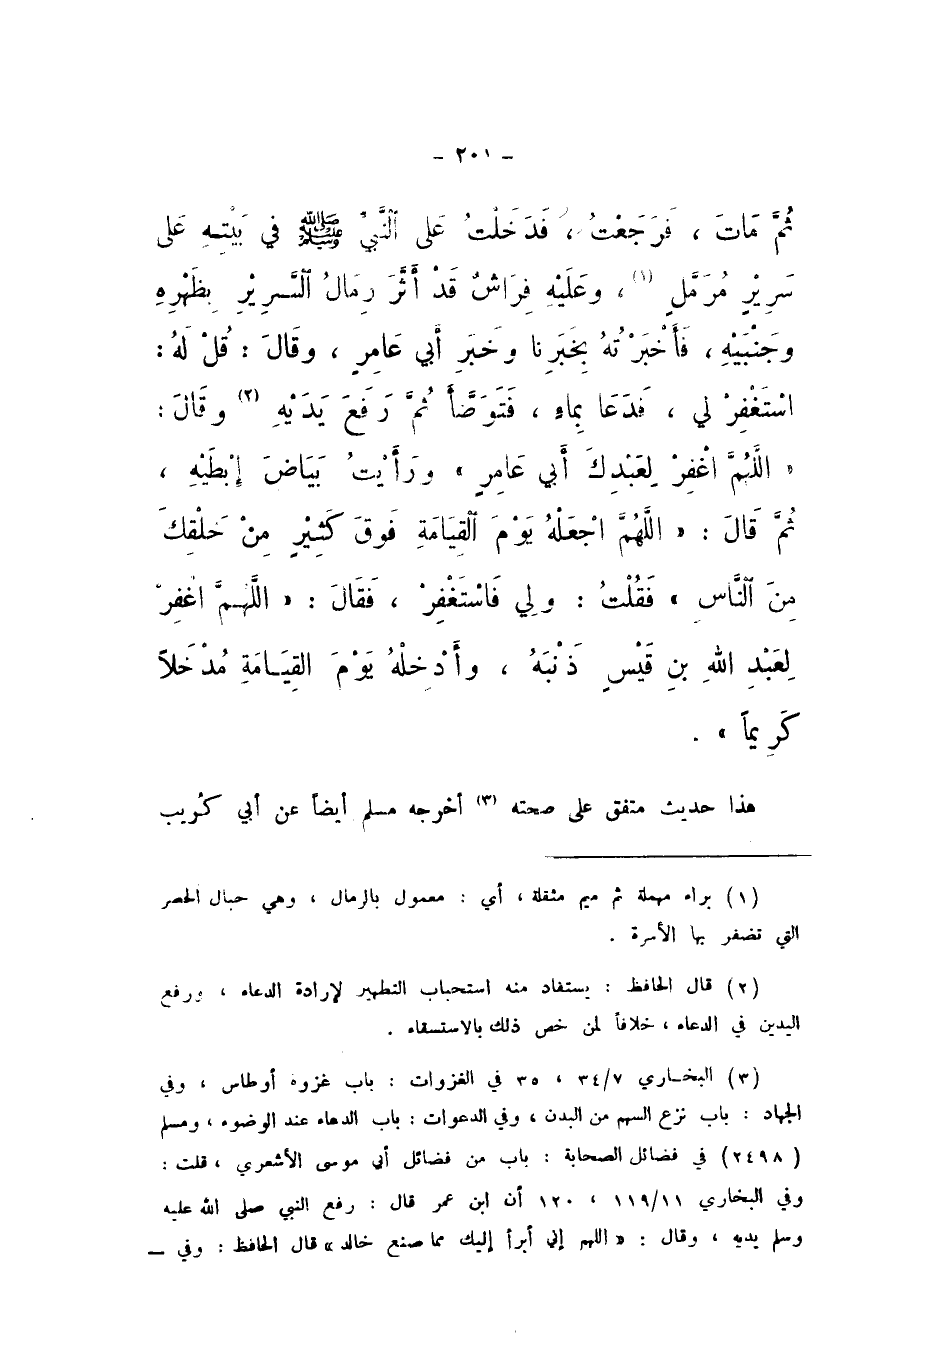 - ٢٠١ -
ثُمَّ مَاتَ ، فَرَجَعْتُ ، فَدَخَلْتُ عَلى ٱلنَّبِيِّ ﷺ في بَيْتِـهِ عَلى
سَرِيْرٍ مُرَمَّلٍ (١) ، وعَلَيْهِ فِرَاشٌ قَدْ أَثَّرَ رِمَالُ ٱلسَّـرِيْرِ بِظَهْرِهِ
وجَنْبَيْهِ ، فَأَخْبَرْتُهُ بِخَبَرِنا وخَبَرِ أَبي عَامِرٍ ، وقَالَ : قُلْ لَهُ :
اسْتَغْفِرْ لي ، فَدَعَا بِماءٍ ، فَتَوَضَّأَ ثُمَّ رَفَعَ يَدَيْهِ (٢) وقَالَ :
« اللَّهُمَّ اغْفِرْ لِعَبْدِكَ أَبي عَامِرٍ » ورَأَيْتُ بَيَاضَ إِبْطَيْهِ ،
ثُمَّ قَالَ : « اللَّهُمَّ اجْعَلْهُ يَوْمَ ٱلقِيَامَةِ فَوقَ كَثِيْرٍ مِنْ خَلْقِكَ
مِنَ ٱلنَّاسِ » فَقُلْتُ : ولي فَاسْتَغْفِرْ ، فَقَالَ : « اللَّهُـمَّ اغْفِرْ
لِعَبْدِ اللهِ بنِ قَيْسٍ ذَنْبَهُ ، وأَدْخِلْهُ يَوْمَ القِيَـامَةِ مُدْخَلاً
كَرِيماً » .
هذا حديث متفق على صحته (٣) أخرجه مسلم أيضاً عن أبي كُريب
(١) براء مهملة ثم ميم مثقلة ، أي : معمول بالرمال ، وهي حبال الحصر
التي تضفر بها الأسرة .
(٢) قال الحافظ : يستفاد منه استحباب التطهير لإرادة الدعاء ، ورفع
اليدين في الدعاء ، خلافاً لمن خص ذلك بالاستسقاء .
(٣) البخـاري ٣٤/٧ ، ٣٥ في الغزوات : باب غزوه أوطاس ، وفي
الجهاد : باب نزع السهم من البدن ، وفي الدعوات : باب الدعاء عند الوضوء ، ومسلم
( ٢٤٩٨) في فضائل الصحابة : باب من فضائل أبي موسى الأشعري ، قلت :
وفي البخاري ١١٩/١١ ، ١٢٠ أن ابن عمر قال : رفع النبي صلى الله عليه
وسلم يديه ، وقال : « اللهم إني أبرأ إليك مما صنع خالد » قال الحافظ : وفي ـ